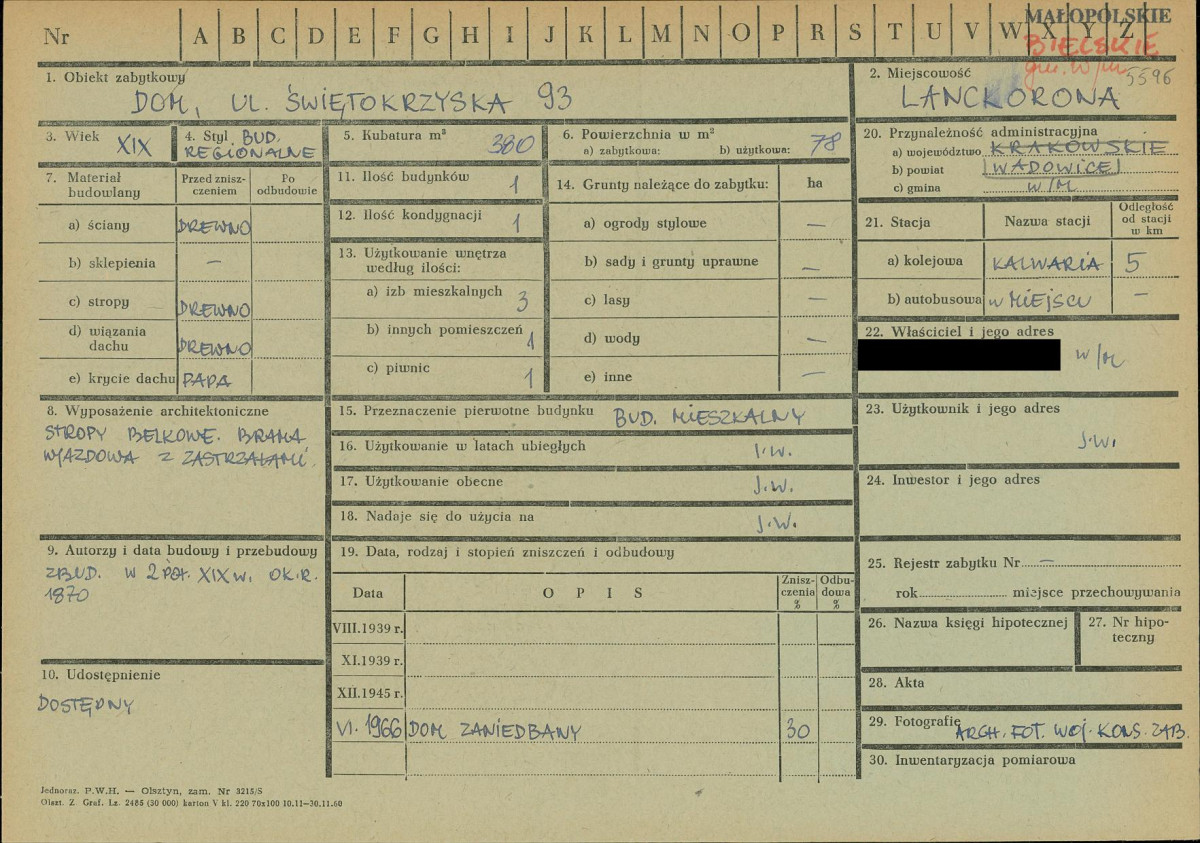 Nr A B C D E F G H I J K L M N O P R S T U V W X Y Z
MAŁOPOLSKIE
BIELSKIE
gm. W/M
5596
1. Obiekt zabytkowy
DOM, UL. ŚWIĘTOKRZYSKA 93
2. Miejscowość
LANCKORONA
3. Wiek XIX
4. Styl BUD.
REGIONALNE
5. Kubatura m³
380
6. Powierzchnia w m²
a) zabytkowa: b) użytkowa: 78
20. Przynależność administracyjna
a) województwo KRAKOWSKIE
b) powiat WADOWICE
c) gmina W/M
7. Materiał budowlany
Przed zniszczeniem
Po odbudowie
a) ściany DREWNO
b) sklepienia —
c) stropy DREWNO
d) wiązania dachu DREWNO
e) krycie dachu PAPA
11. Ilość budynków 1
12. Ilość kondygnacji 1
13. Użytkowanie wnętrza
według ilości:
a) izb mieszkalnych 3
b) innych pomieszczeń 1
c) piwnic 1
14. Grunty należące do zabytku: ha
a) ogrody stylowe —
b) sady i grunty uprawne —
c) lasy —
d) wody —
e) inne —
21. Stacja Nazwa stacji Odległość od stacji w km
a) kolejowa KALWARIA 5
b) autobusowa W MIEJSCU —
22. Właściciel i jego adres
W/M
8. Wyposażenie architektoniczne
STROPY BELKOWE. BRAMA
WJAZDOWA Z ZASTRZAŁAMI.
15. Przeznaczenie pierwotne budynku BUD. MIESZKALNY
16. Użytkowanie w latach ubiegłych J.W.
17. Użytkowanie obecne J.W.
18. Nadaje się do użycia na J.W.
23. Użytkownik i jego adres
J.W.
24. Inwestor i jego adres
9. Autorzy i data budowy i przebudowy
ZBUD. W 2 POŁ. XIX W. OK. R.
1870
10. Udostępnienie
DOSTĘPNY
19. Data, rodzaj i stopień zniszczeń i odbudowy
Data OPIS Zniszczenia % Odbudowa %
VIII.1939 r.
XI.1939 r.
XII.1945 r.
VI. 1966 DOM ZANIEDBANY 30
25. Rejestr zabytku Nr —
rok miejsce przechowywania
26. Nazwa księgi hipotecznej
27. Nr hipoteczny
28. Akta
29. Fotografie ARCH. FOT. WOJ. KONS. ZAB.
30. Inwentaryzacja pomiarowa
Jednoraz. P.W.H. — Olsztyn, zam. Nr 3215/S
Olszt. Z. Graf. Lz. 2485 (30 000) karton V kl. 220 70x100 10.11—30.11.60